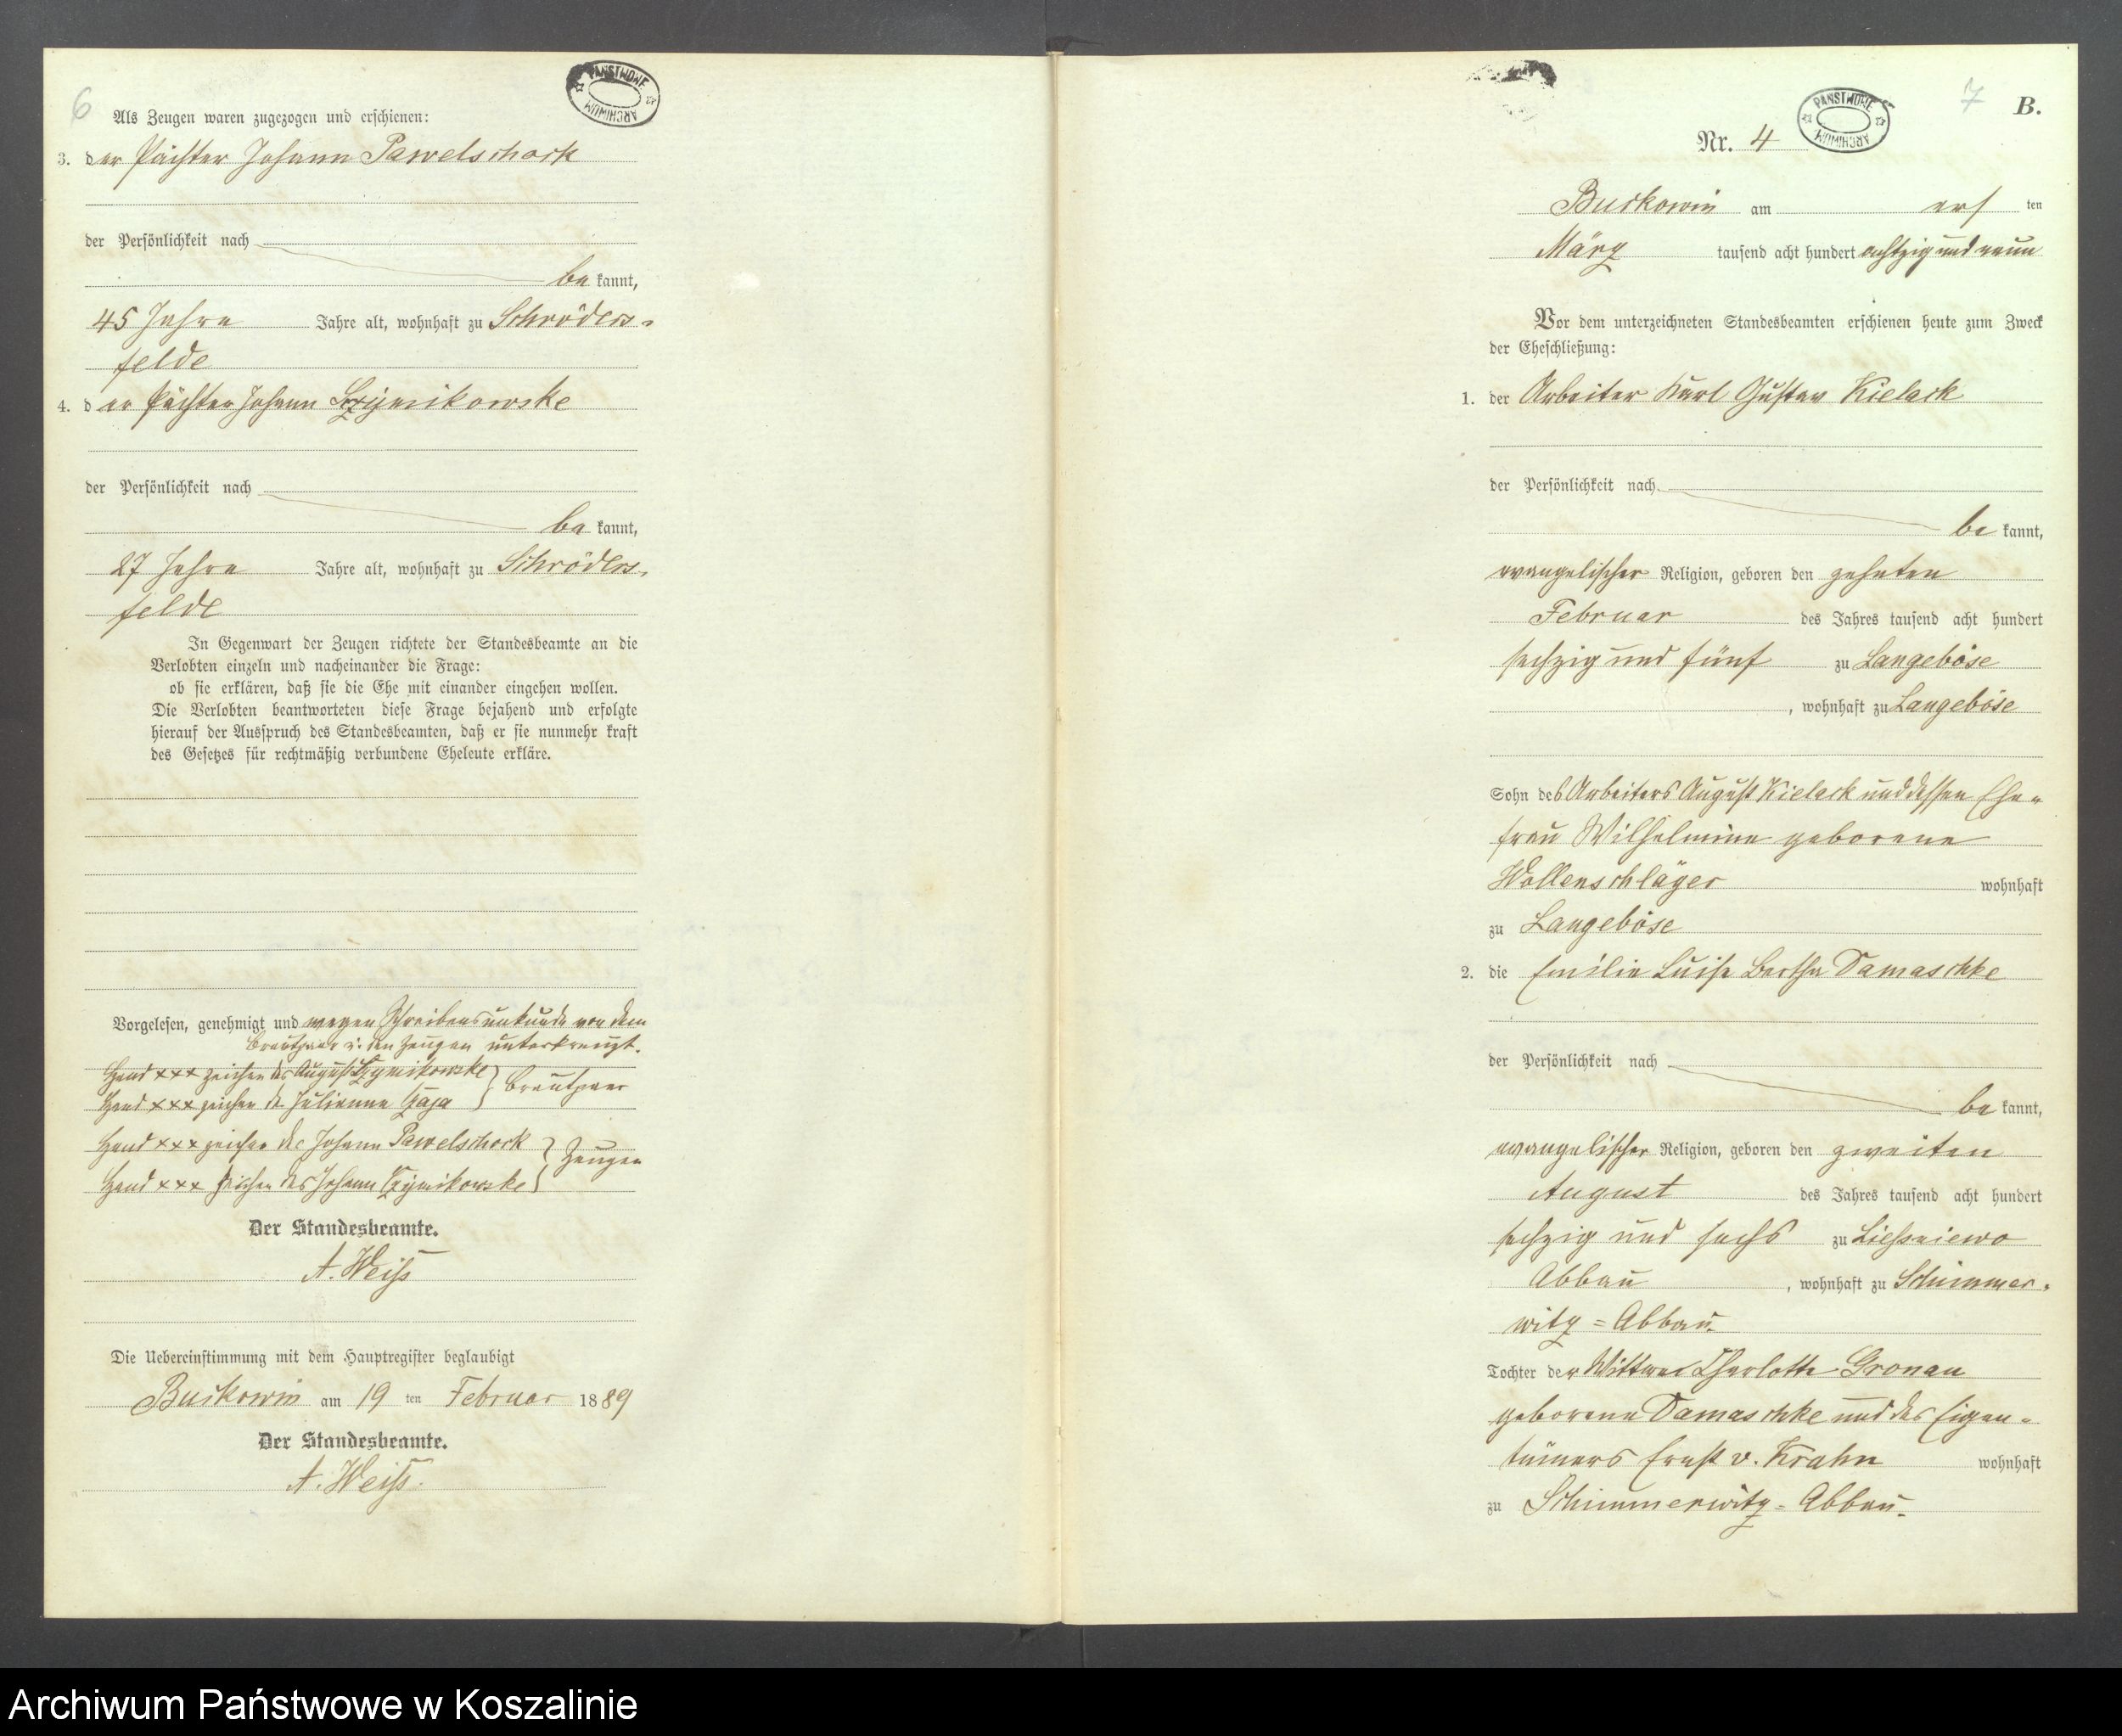 6
PAŃSTWOWE ARCHIWUM
Als Zeugen waren zugezogen und erschienen:
3. der Pächter Johann Pawelschock
der Persönlichkeit nach
be kannt,
45 Jahre Jahre alt, wohnhaft zu Schröders-
felde
4. der Pächter Johann Czymikowske
der Persönlichkeit nach
be kannt,
27 Jahre Jahre alt, wohnhaft zu Schröders-
felde
In Gegenwart der Zeugen richtete der Standesbeamte an die
Verlobten einzeln und nacheinander die Frage:
ob sie erklären, daß sie die Ehe mit einander eingehen wollen.
Die Verlobten beantworteten diese Frage bejahend und erfolgte
hierauf der Ausspruch des Standesbeamten, daß er sie nunmehr kraft
des Gesetzes für rechtmäßig verbundene Eheleute erkläre.
Vorgelesen, genehmigt und wegen Schreibensunkunde von dem
Brautpaar u. den Zeugen unterkreuzt.
Hand xxx zeichen des August Czymikowske
Hand xxx zeichen der Julianna Czaja } Brautpaar
Hand xxx zeichen des Johann Pawelschock
Hand xxx zeichen des Johann Czymikowske } Zeugen
Der Standesbeamte.
A. Weiß
Die Uebereinstimmung mit dem Hauptregister beglaubigt
Buckowin am 19 ten Februar 1889
Der Standesbeamte.
A. Weiß.
7
B.
PAŃSTWOWE ARCHIWUM
Nr. 4
Buckowin am ers ten
März tausend acht hundert achtzig und neun
Vor dem unterzeichneten Standesbeamten erschienen heute zum Zweck
der Eheschließung:
1. der Arbeiter Karl Gustav Kielack
der Persönlichkeit nach
be kannt,
evangelischer Religion, geboren den zehnten
Februar des Jahres tausend acht hundert
sechzig und fünf zu Langeböse
, wohnhaft zu Langeböse
Sohn des Arbeiters August Kielack und dessen Ehe-
frau Wilhelmine geborene
Wollenschläger wohnhaft
zu Langeböse
2. die Emilie Luise Bertha Damaschke
der Persönlichkeit nach
be kannt,
evangelischer Religion, geboren den zweiten
August des Jahres tausend acht hundert
sechzig und sechs zu Liessniewo
Abbau , wohnhaft zu Schimmer-
witz = Abbau.
Tochter der Wittwe Charlotte Gronau
geborene Damaschke und des Eigen-
tümers Ernst v. Krahn wohnhaft
zu Schimmerwitz = Abbau.
Archiwum Państwowe w Koszalinie